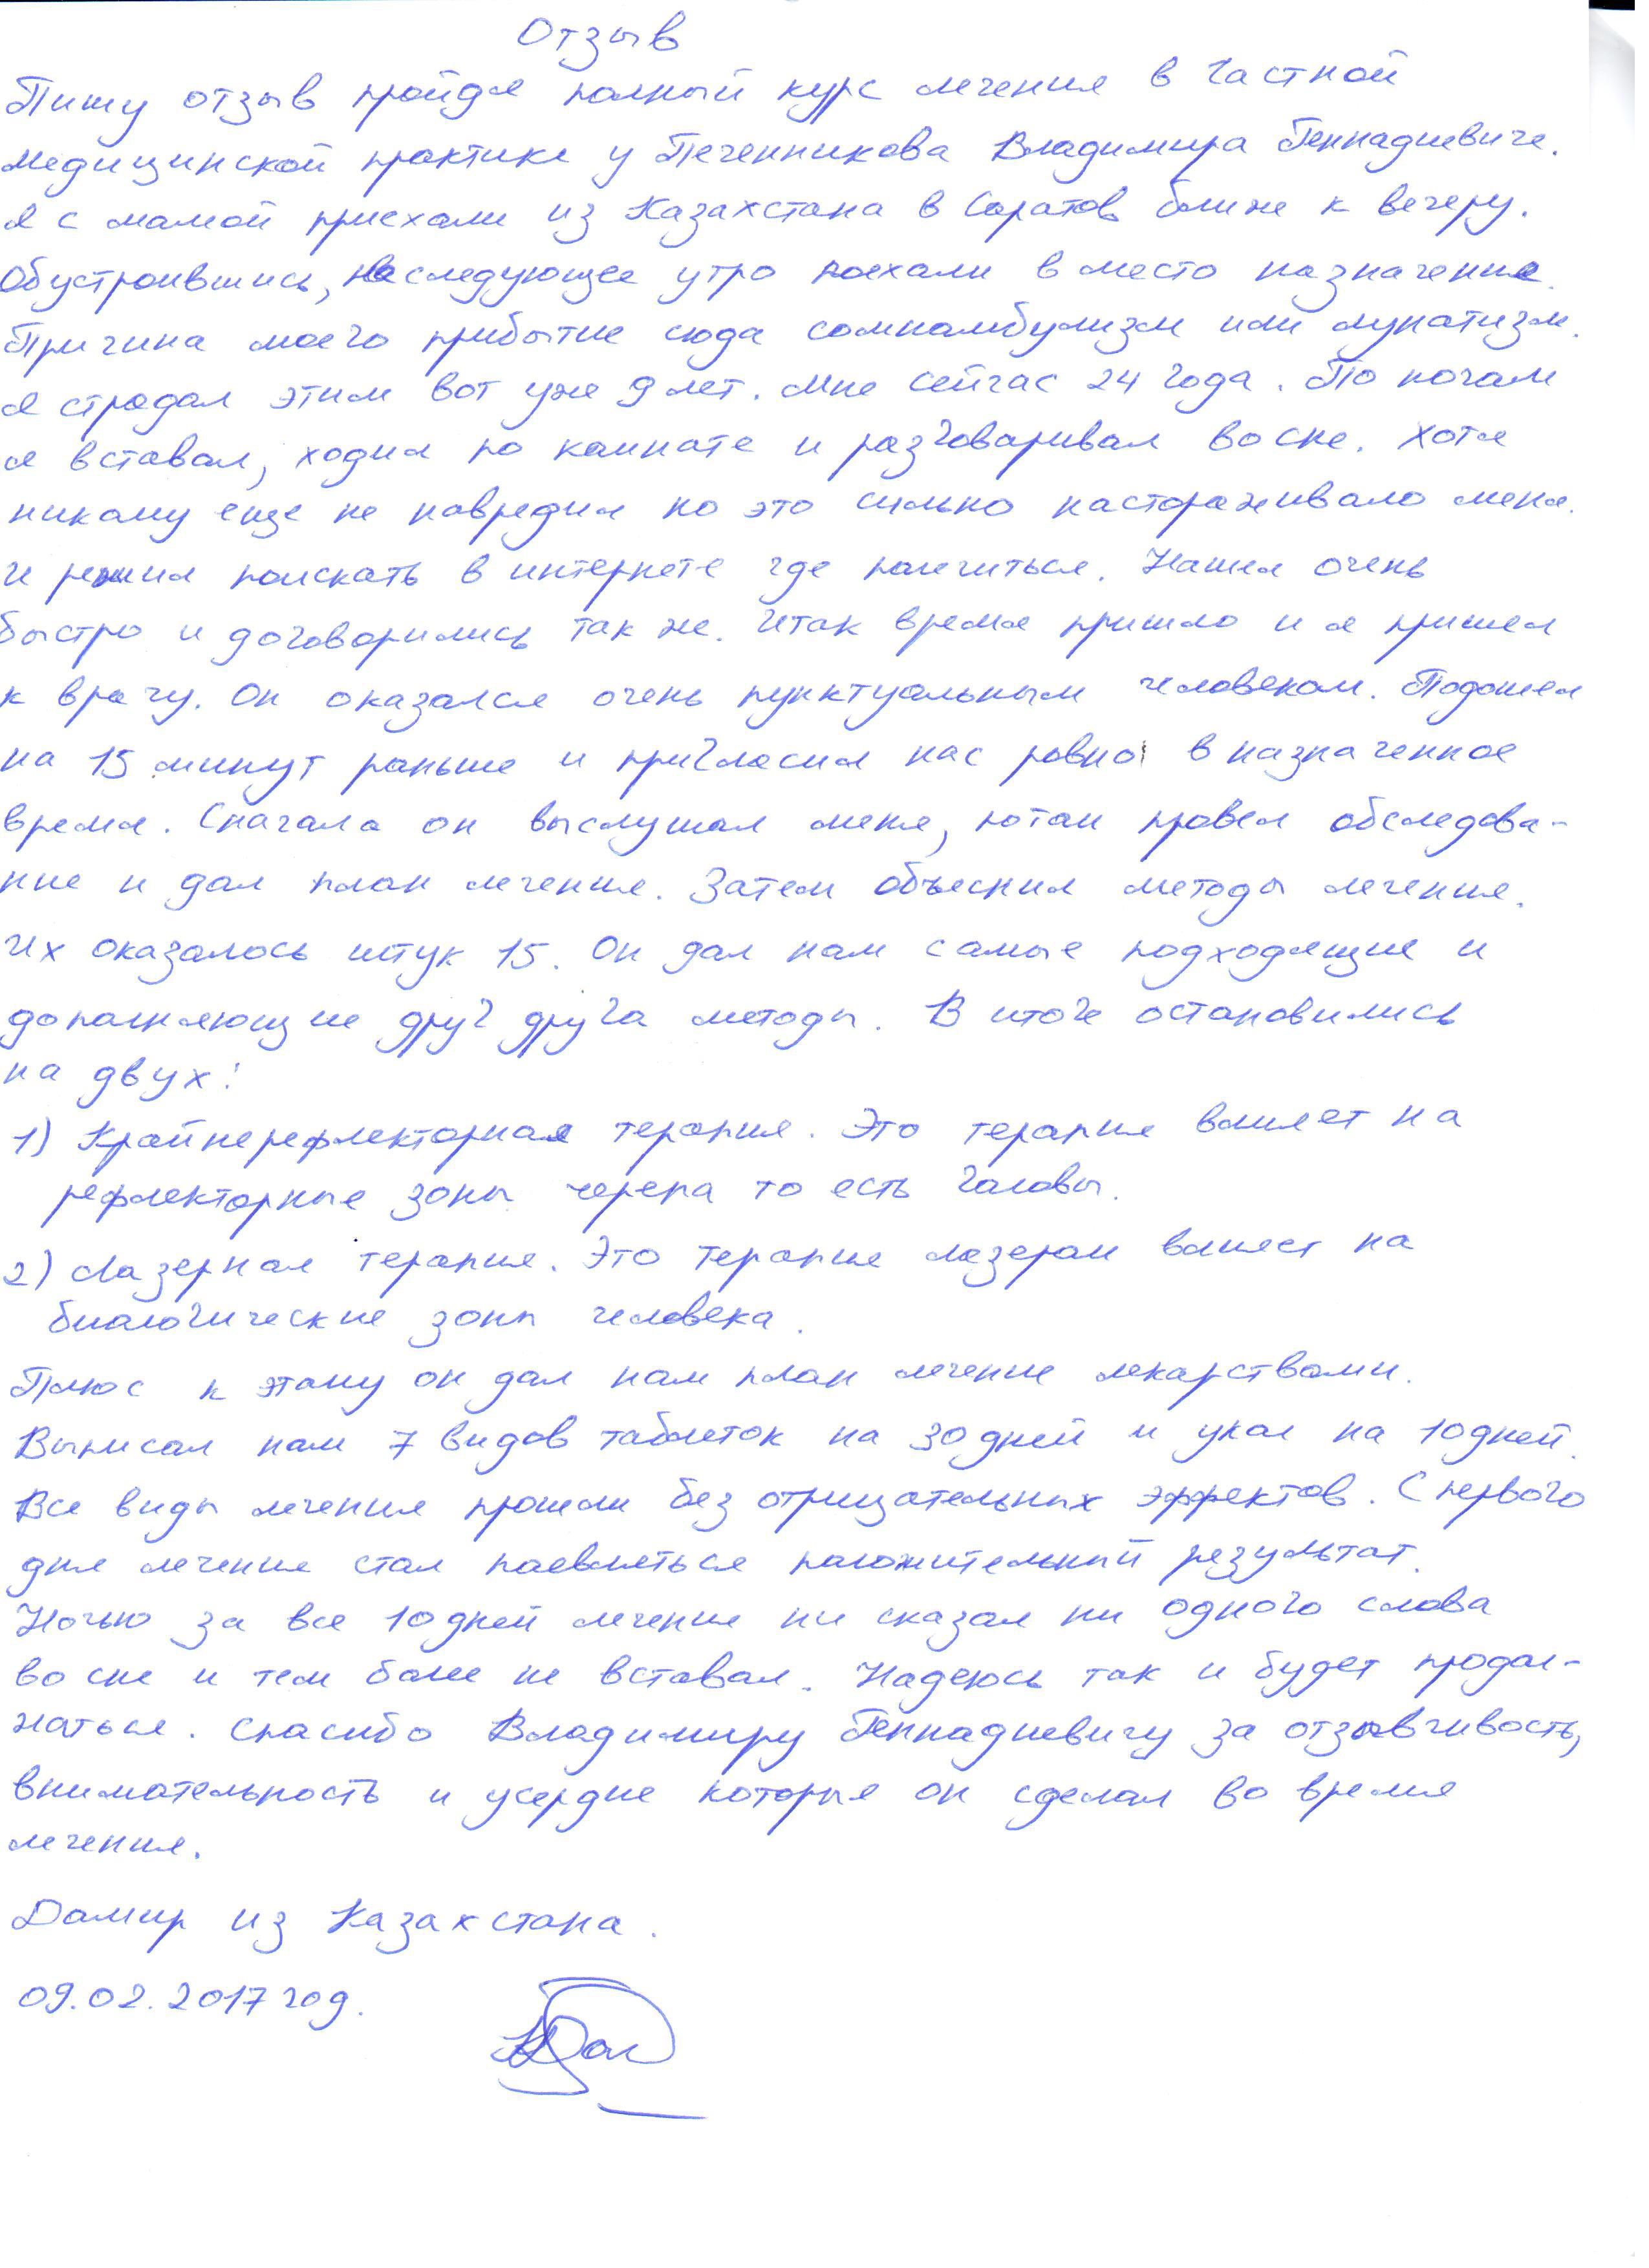 Отзыв
Пишу отзыв пройдя полный курс лечения в частной
медицинской практике у Печенникова Владимира Геннадиевича.
Я с мамой приехали из Казахстана в Саратов ближе к вечеру.
Обустроившись, на следующее утро поехали в место назначение.
Причина моего прибытие сюда сомнамбулизм или лунатизм.
Я страдал этим вот уже 9 лет. Мне сейчас 24 года. По ночам
я вставал, ходил по комнате и разговаривал во сне. Хотя
никому еще не навредил но это сильно настораживало меня.
И решил поискать в интернете где полечиться. Нашел очень
быстро и договорились так же. Итак время пришло и я пришел
к врачу. Он оказался очень пунктуальным человеком. Подошел
на 15 минут раньше и пригласил нас ровно в назначенное
время. Сначала он выслушал меня, потом провел обследова-
ние и дал план лечения. Затем объяснил методы лечения.
Их оказалось штук 15. Он дал нам самые подходящие и
дополняющие друг друга методы. В итоге остановились
на двух:
1) Крайнерефлекторная терапия. Это терапия влияет на
рефлекторные зоны черепа то есть головы.
2) Лазерная терапия. Это терапия лазером влияет на
биологические зоны человека.
Плюс к этому он дал нам план лечение лекарствами.
Выписал нам 7 видов таблеток на 30 дней и укол на 10 дней.
Все виды лечения прошли без отрицательных эффектов. С первого
дня лечения стал появляться положительный результат.
Ночью за все 10 дней лечения ни сказал ни одного слова
во сне и тем более не вставал. Надеюсь так и будет продол-
жаться. Спасибо Владимиру Геннадиевичу за отзывчивость,
внимательность и усердие которые он сделал во время
лечения.
Дамир из Казахстана.
09.02.2017 год.